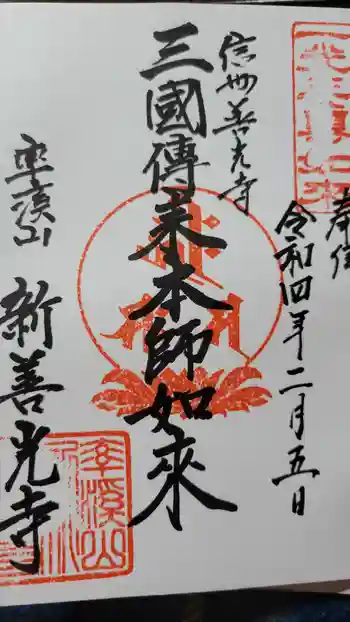 奉拝
令和四年二月五日
信州善光寺
三國傳来本師如來
率溪山
新善光寺
率溪山